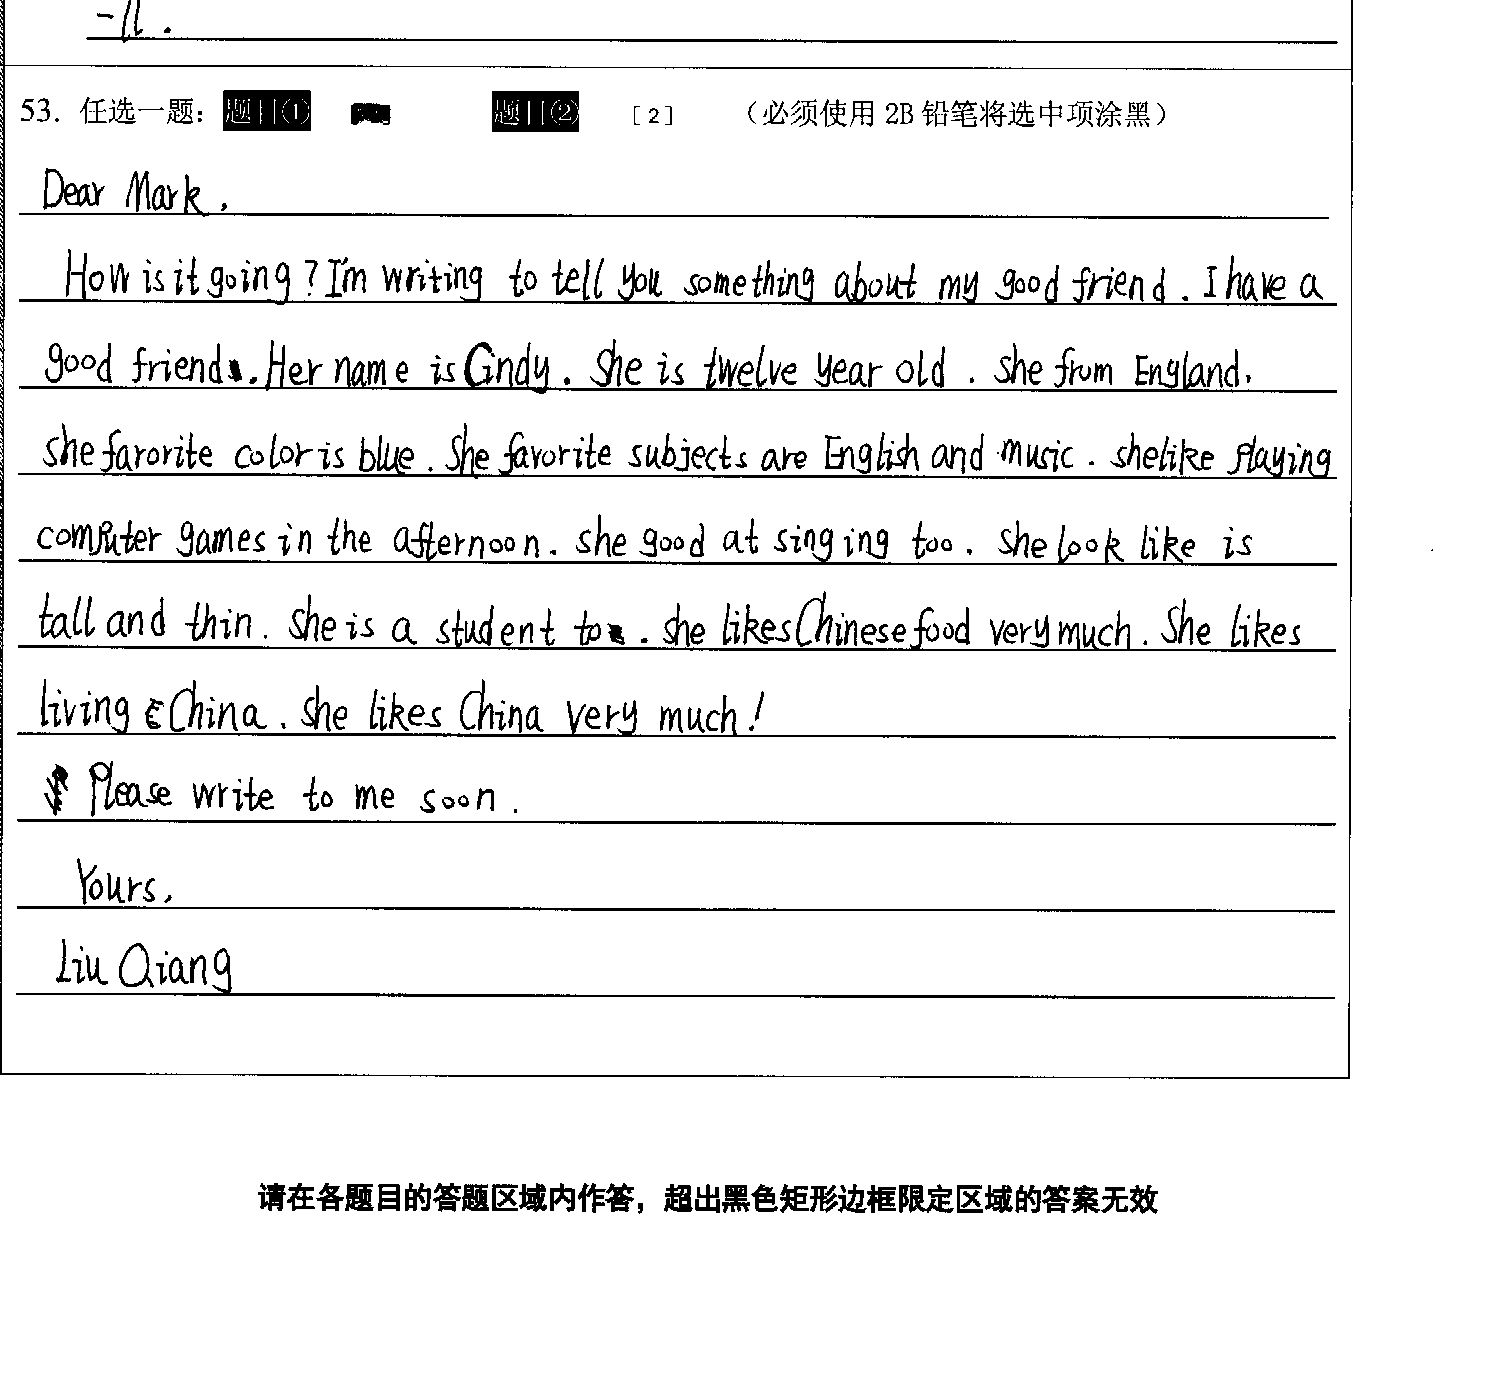 53. 任选一题: 题目① 题目② [2] (必须使用 2B 铅笔将选中项涂黑)
Dear Mark,
How is it going? I'm writing to tell you something about my good friend. I have a
good friend. Her name is Cindy. She is twelve year old. She from England.
she farorite color is blue. She favorite subjects are English and music. she like playing
computer games in the afternoon. she good at singing too. she look like is
tall and thin. She is a student too. she likes Chinese food very much. She likes
living China. she likes China very much!
Please write to me soon.
Yours,
Liu Qiang
请在各题目的答题区域内作答，超出黑色矩形边框限定区域的答案无效